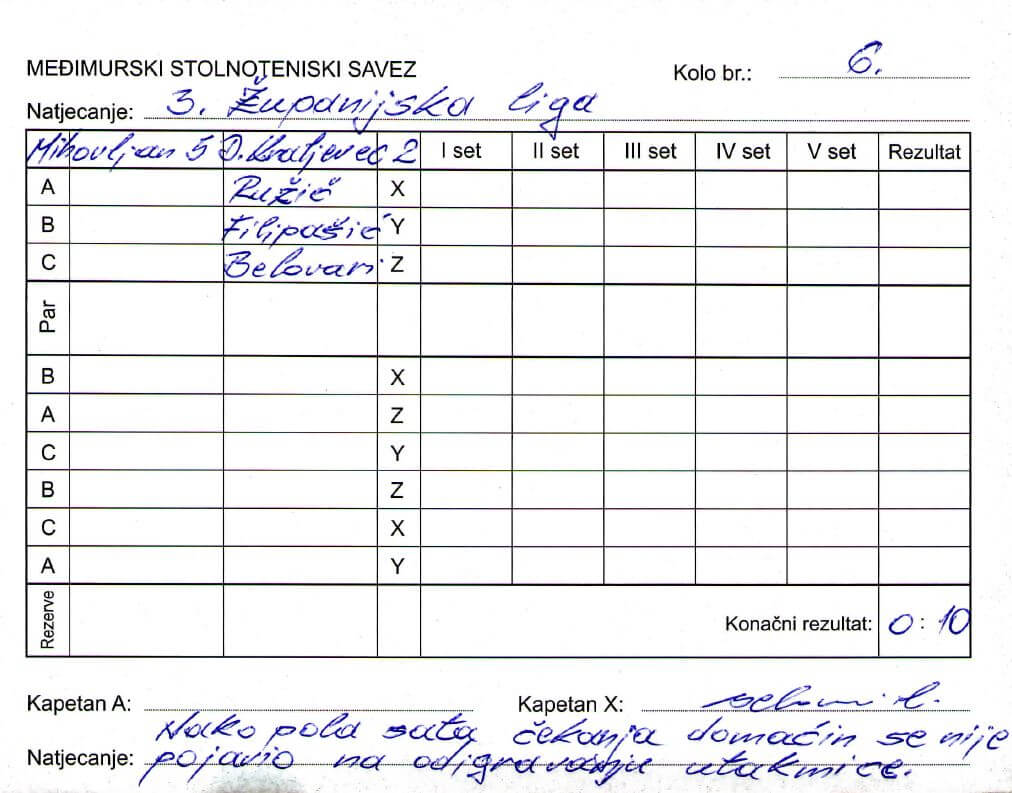 MEĐIMURSKI STOLNOTENISKI SAVEZ
Kolo br.: 6.
Natjecanje: 3. Županijska liga
Mihovljan 5 D. Kraljevec 2 I set II set III set IV set V set Rezultat
A Ružić X
B Filipašić Y
C Belovari Z
Par
B X
A Z
C Y
B Z
C X
A Y
Rezerve Konačni rezultat: 0 : 10
Kapetan A: Kapetan X:
Nako pola sata čekanja domaćin se nije
Natjecanje: pojavio na odigravanju utakmice.